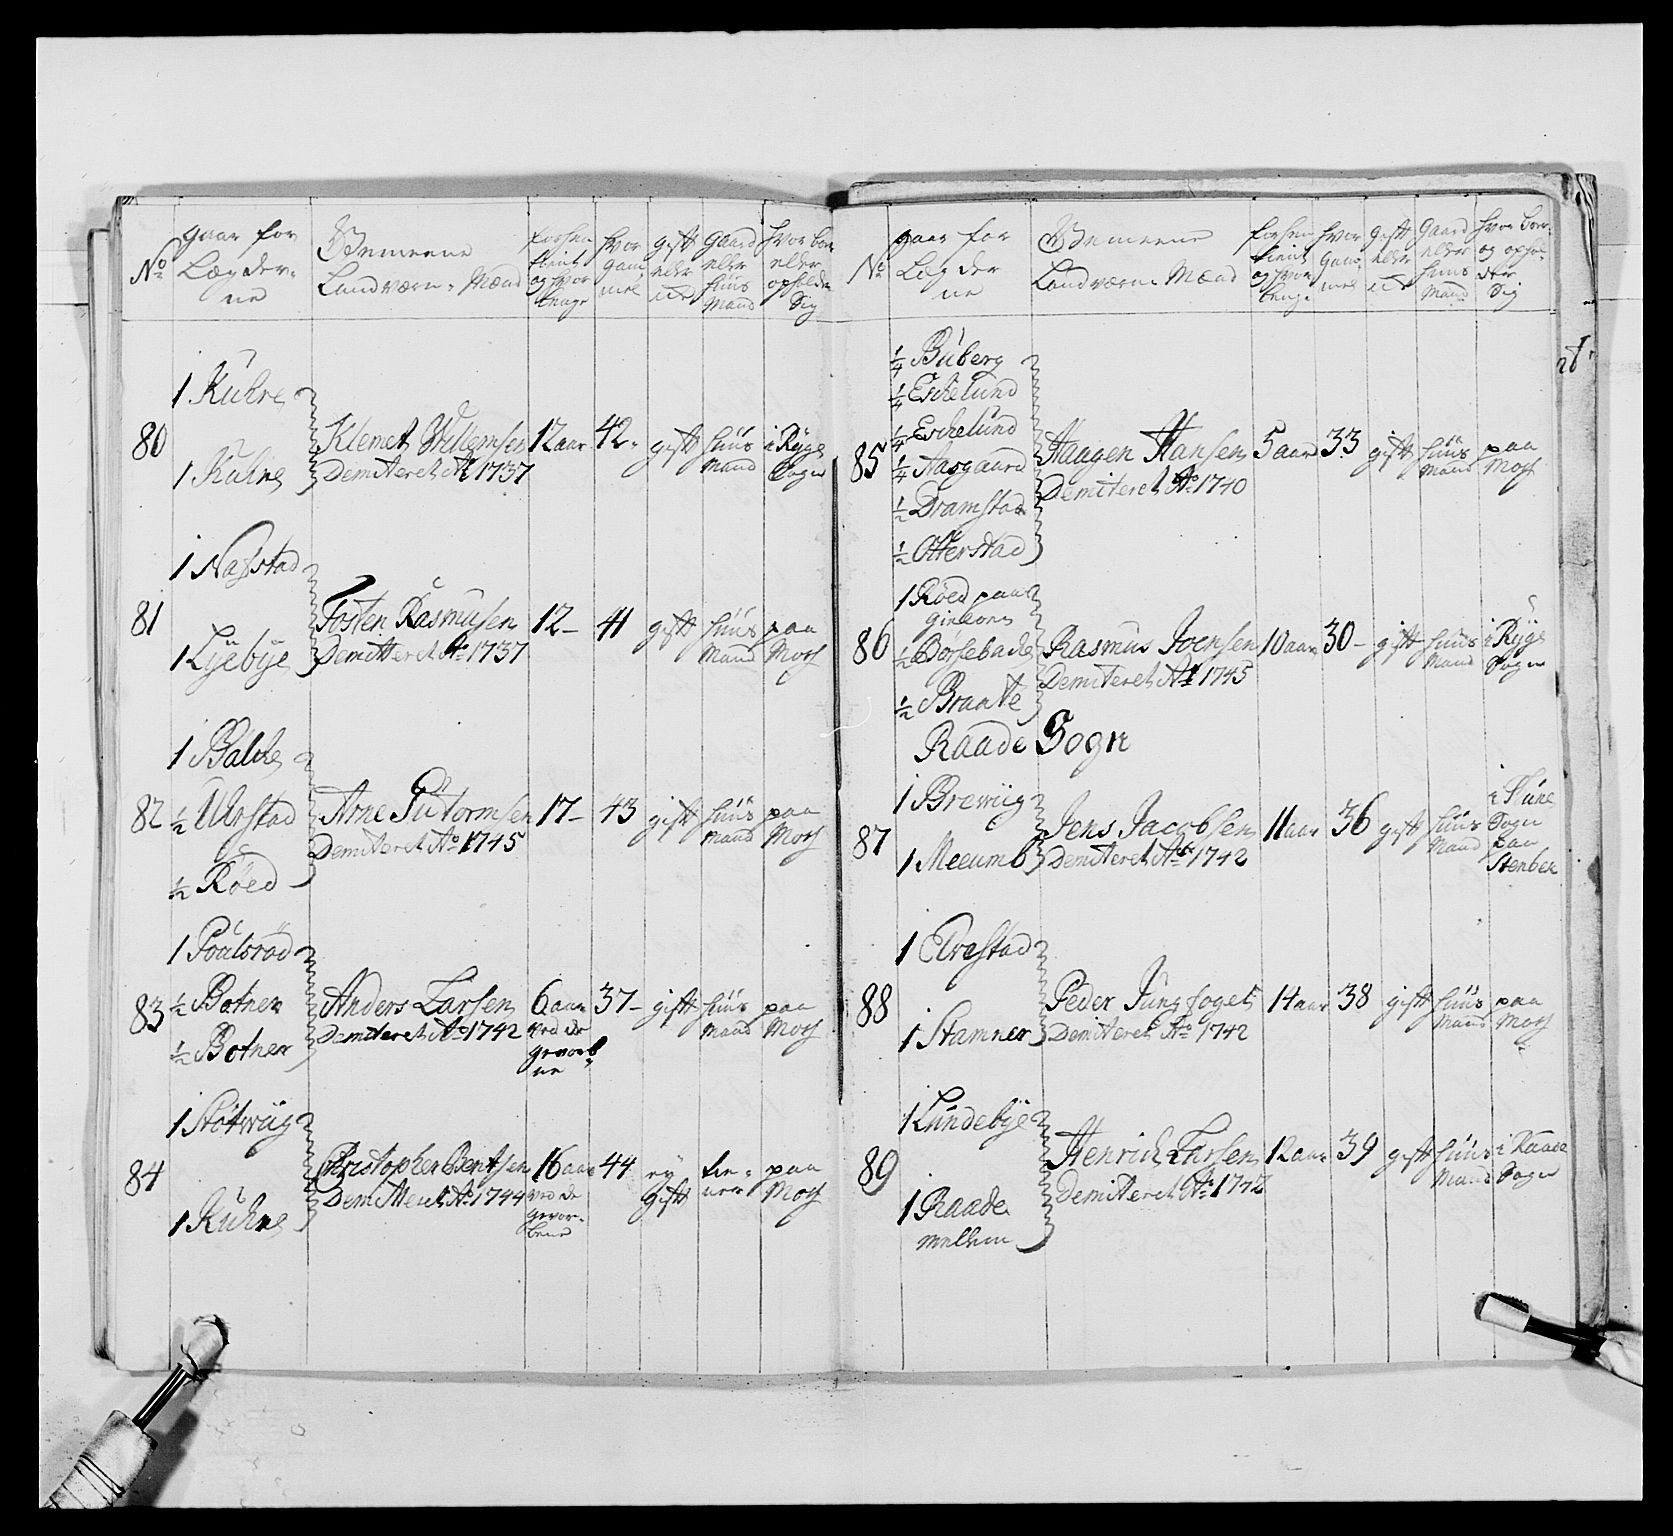 No
gaar for
Lægder-
ne
Gemeene
Landværn-Mænd
forhen
tient
og hvor
lenge
hvor
gam
mel
gift
eller
ei
Gaard
eller
huus
Mand
hvor boer
eller
opholder
Sig
80
1 Kuhre
1 Kuhre
Klemet Willemsen
Demitteret Ao 1737
12 aar
42-
gift
huus
Mand
i Ryge
Sogn
81
1 Nafstad
1 Lyebye
Tosten Rasmusen
Demitteret Ao 1737
12-
41
gift
huus
Mand
paa
Moss
82
1 Balke
1/2 Ullerstad
1/2 Røed
Arne Gutormsen
Demitteret Ao 1745
17-
43
gift
huus
Mand
paa
Moss
83
1 Poulsrød
1/2 Botner
1/2 Botner
Anders Larsen
Demitteret Ao 1742
6 aar
ved de
gevorb-
ne
37-
gift
huus
Mand
paa
Moss
84
1 Støtwiig
1 Kuhre
Christopher Bentsen
Demitteret Ao 1744
16 aar
ved de
gevor-
bene
44
ey
gift
tie-
ner
paa
Moss
No
gaar for
Lægder
ne
Gemeene
Landværn-Mænd
forhen
tient
og hvor
lenge
hvor
gam-
mel
gift
eller
ei
Gaard
eller
huus
Mand
hvor boer
og ophol-
der
Sig
85
1/4 Buberg
1/4 Eskelund
1/4 Eskelund
1/4 Aasgaard
1/2 Dramstad
1/2 Otterstad
Haagen Hansen
Demiteret Ao 1740
5 aar
33
gift
huus
Mand
paa
Moss
86
1 Røed paa
1/2 Børsebacke
1/2 Braate
Rasmus Joensen
Demiteret Ao 1745
10 aar
30-
gift
huus
Mand
i Ryge
Sogn
Raade Sogn
87
1 Brewiig
1 Meeumb
Jens Jacobsen
Demitteret Ao 1742
11 aar
36
gift
huus
Mand
Sogn
paa
88
1 Arestad
1 Stamner
Peder Jungfoget
Demitteret Ao 1742
14 aar
38
gift
huus
Mand
paa
Moss
89
1 Lundebye
1 Raade
mellem
Henrich Larsen
Demitteret Ao 1742
12 aar
39
gift
huus
Mand
i Raade
Sogn